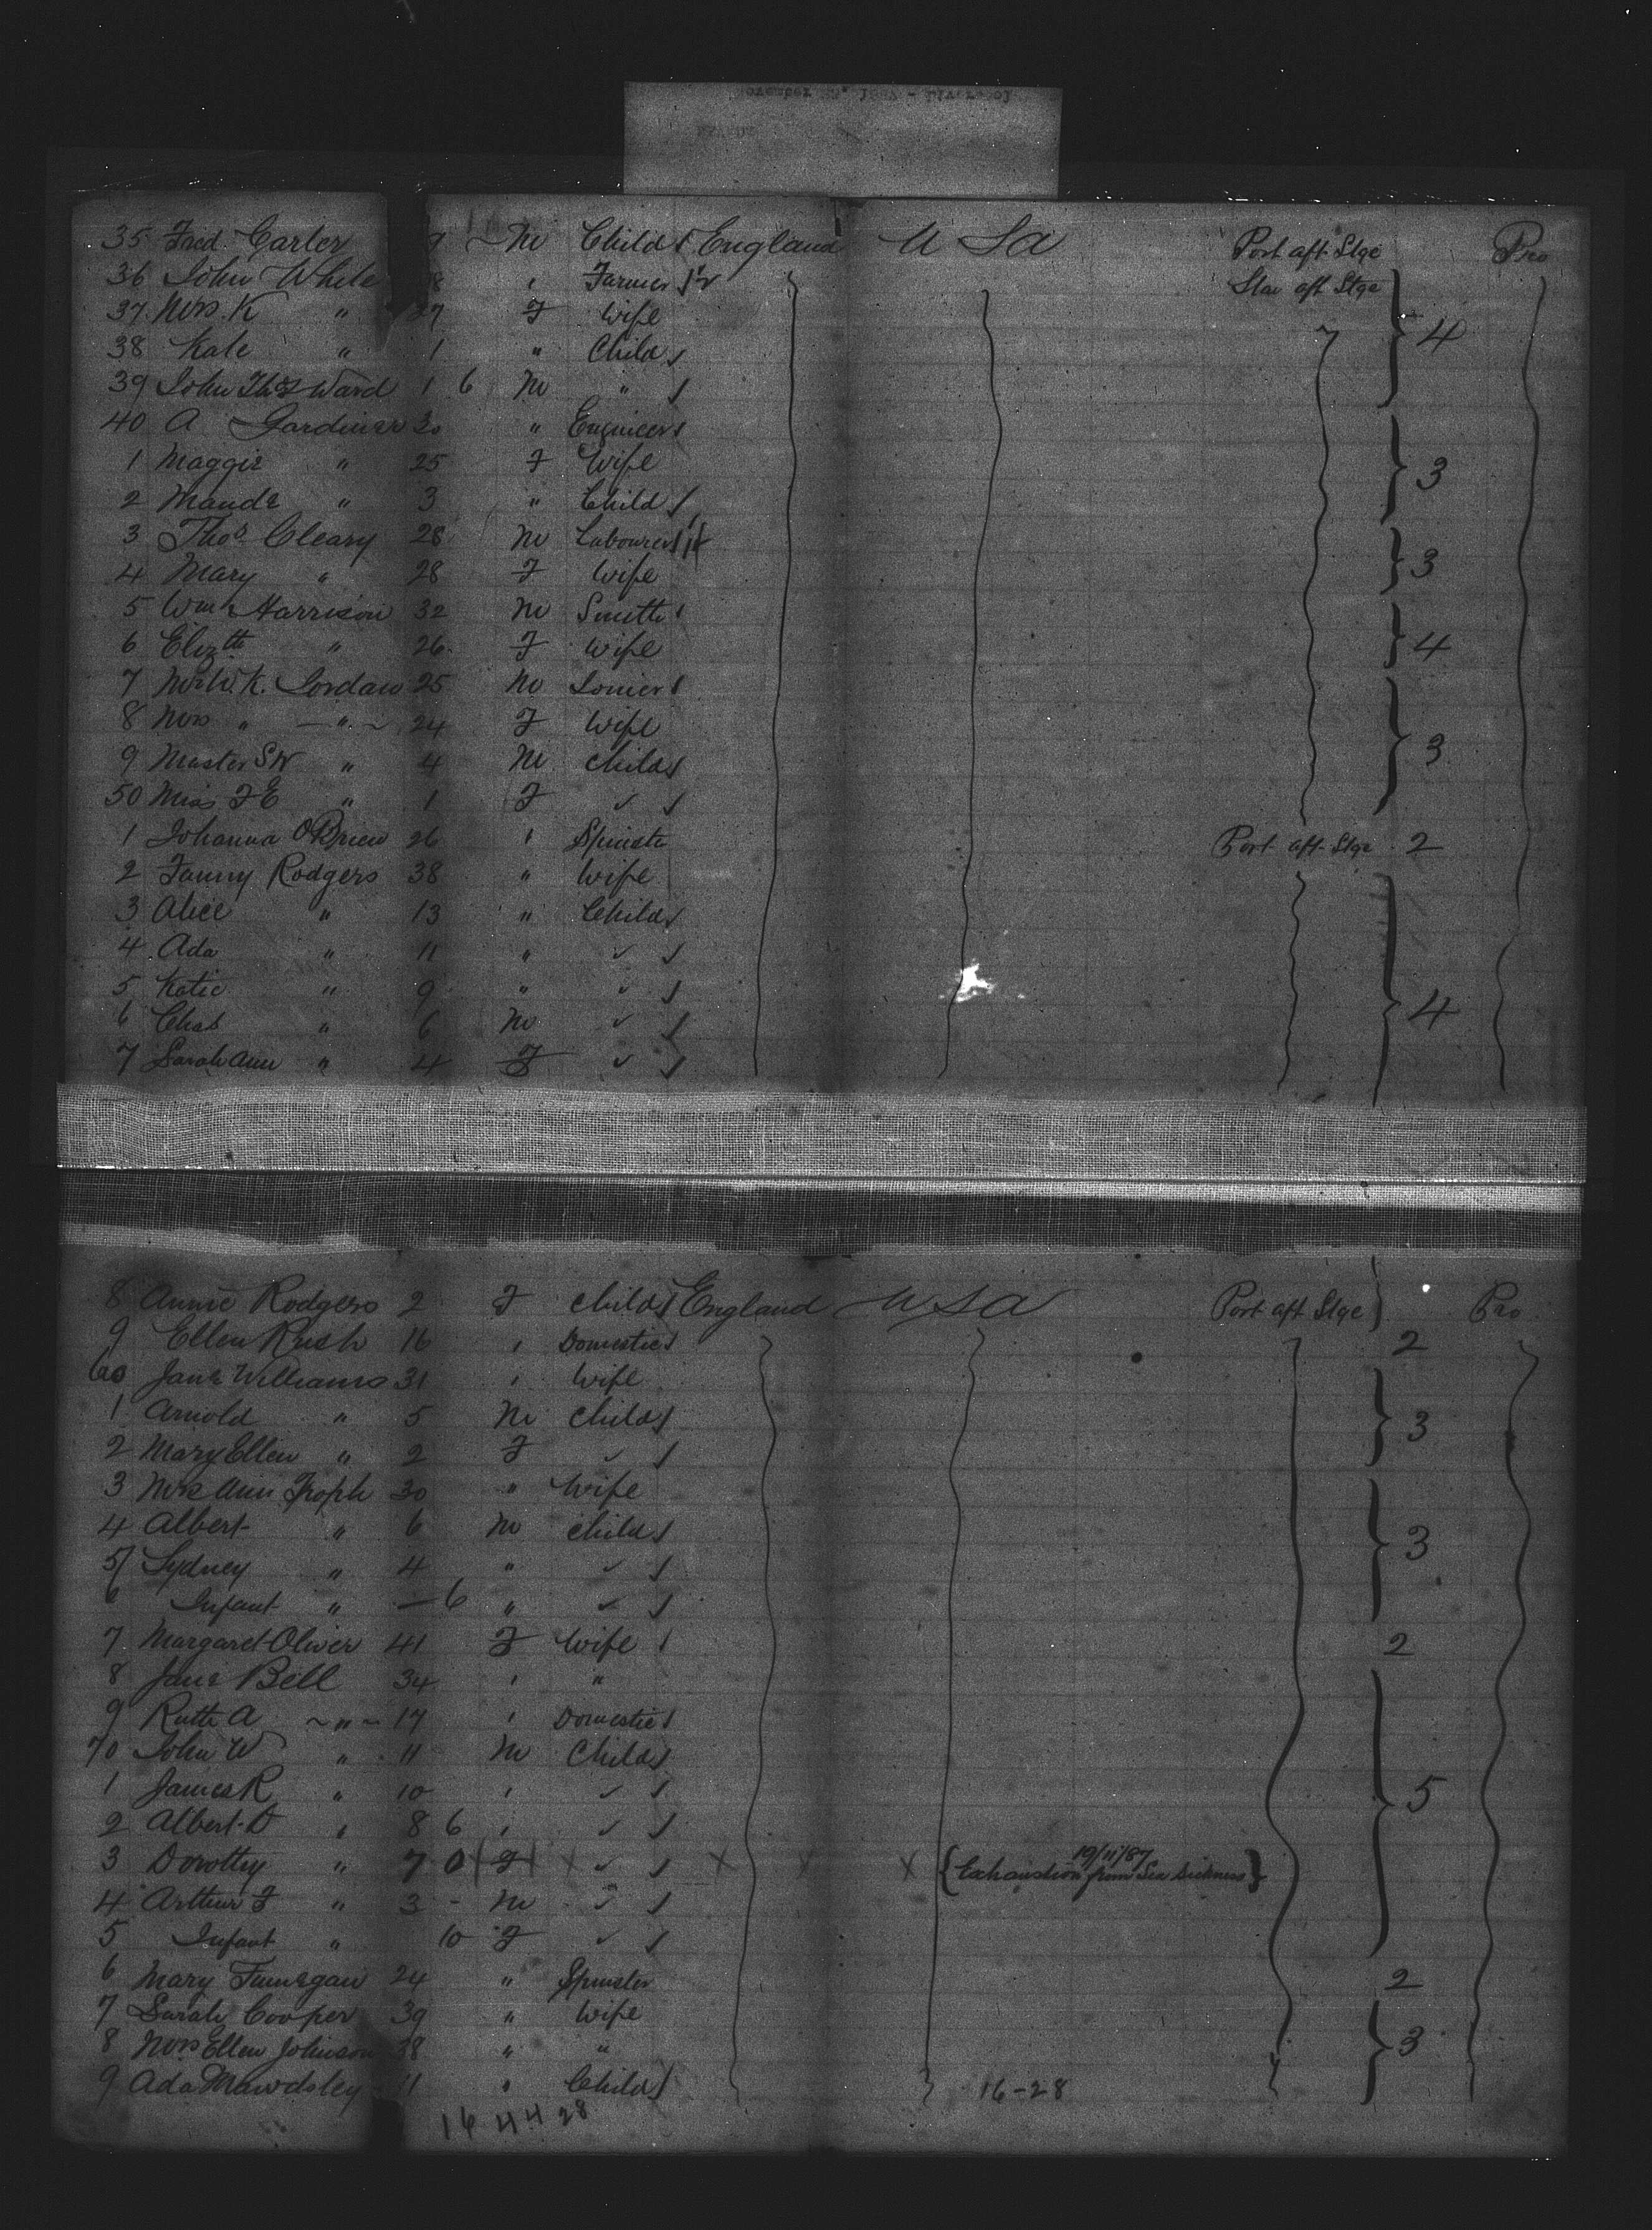 35 Fred. Carter 9 M Child England U Sa Port aft Stge Pro
36 John White 8 " Farmer Star aft Stge
37 Mrs. K " 27 F Wife 4
38 Kate " 1 " Child
39 John Thos Ward 1 6 M "
40 A Gardiner 30 " Engineer
1 Maggie " 25 F Wife 3
2 Maude " 3 " Child
3 Thos. Cleary 28 M Labourer
4 Mary " 28 F Wife 3
5 Wm Harrison 32 M Smith
6 Elizth " 26 F Wife 4
7 Mr W. K. Jordan 25 M
8 Mrs " — " — 24 F Wife
9 Master SW " 4 M Child 3
50 Miss F E " 1 F ✓
1 Johanna O'Brien 26 " Spinster Port aft Stge 2
2 Fanny Rodgers 38 " Wife
3 Alice " 13 " Child
4 Ada " 11 " ✓
5 Katie " 9 " ✓
6 Chas " 6 M ✓ 4
7 Sarah Ann " 4 F ✓
8 Annie Rodgers 2 F Child England U S a Port aft Stge Pro
9 Ellen Rush 16 " Domestic 2
60 Jane Williams 31 " Wife
1 Arnold " 5 M Child 3
2 Mary Ellen " 2 F ✓
3 Mrs Ann 30 " Wife
4 Albert " 6 M Child 3
5 Sydney " 4 " ✓
6 Infant " — 6 " ✓
7 Margaret Oliver 41 F Wife 2
8 Jane Bell 34 " "
9 Ruth A " 17 " Domestic
70 John W " 11 M Child
1 James R " 10 " ✓ 5
2 Albert D " 8 6 " ✓
3 Dorothy " 7 0 F ✓ X X X 19/11/87
{Exhaustion from Sea Sickness}
4 Arthur F " 3 - M ✓
5 Infant " 10 F ✓
6 Mary Finnegan 24 " Spinster 2
7 Sarah Cooper 39 " Wife
8 Mrs Ellen Johnson 38 " " 3
9 Ada Mawdsley 11 " Child 16-28
16 44 28